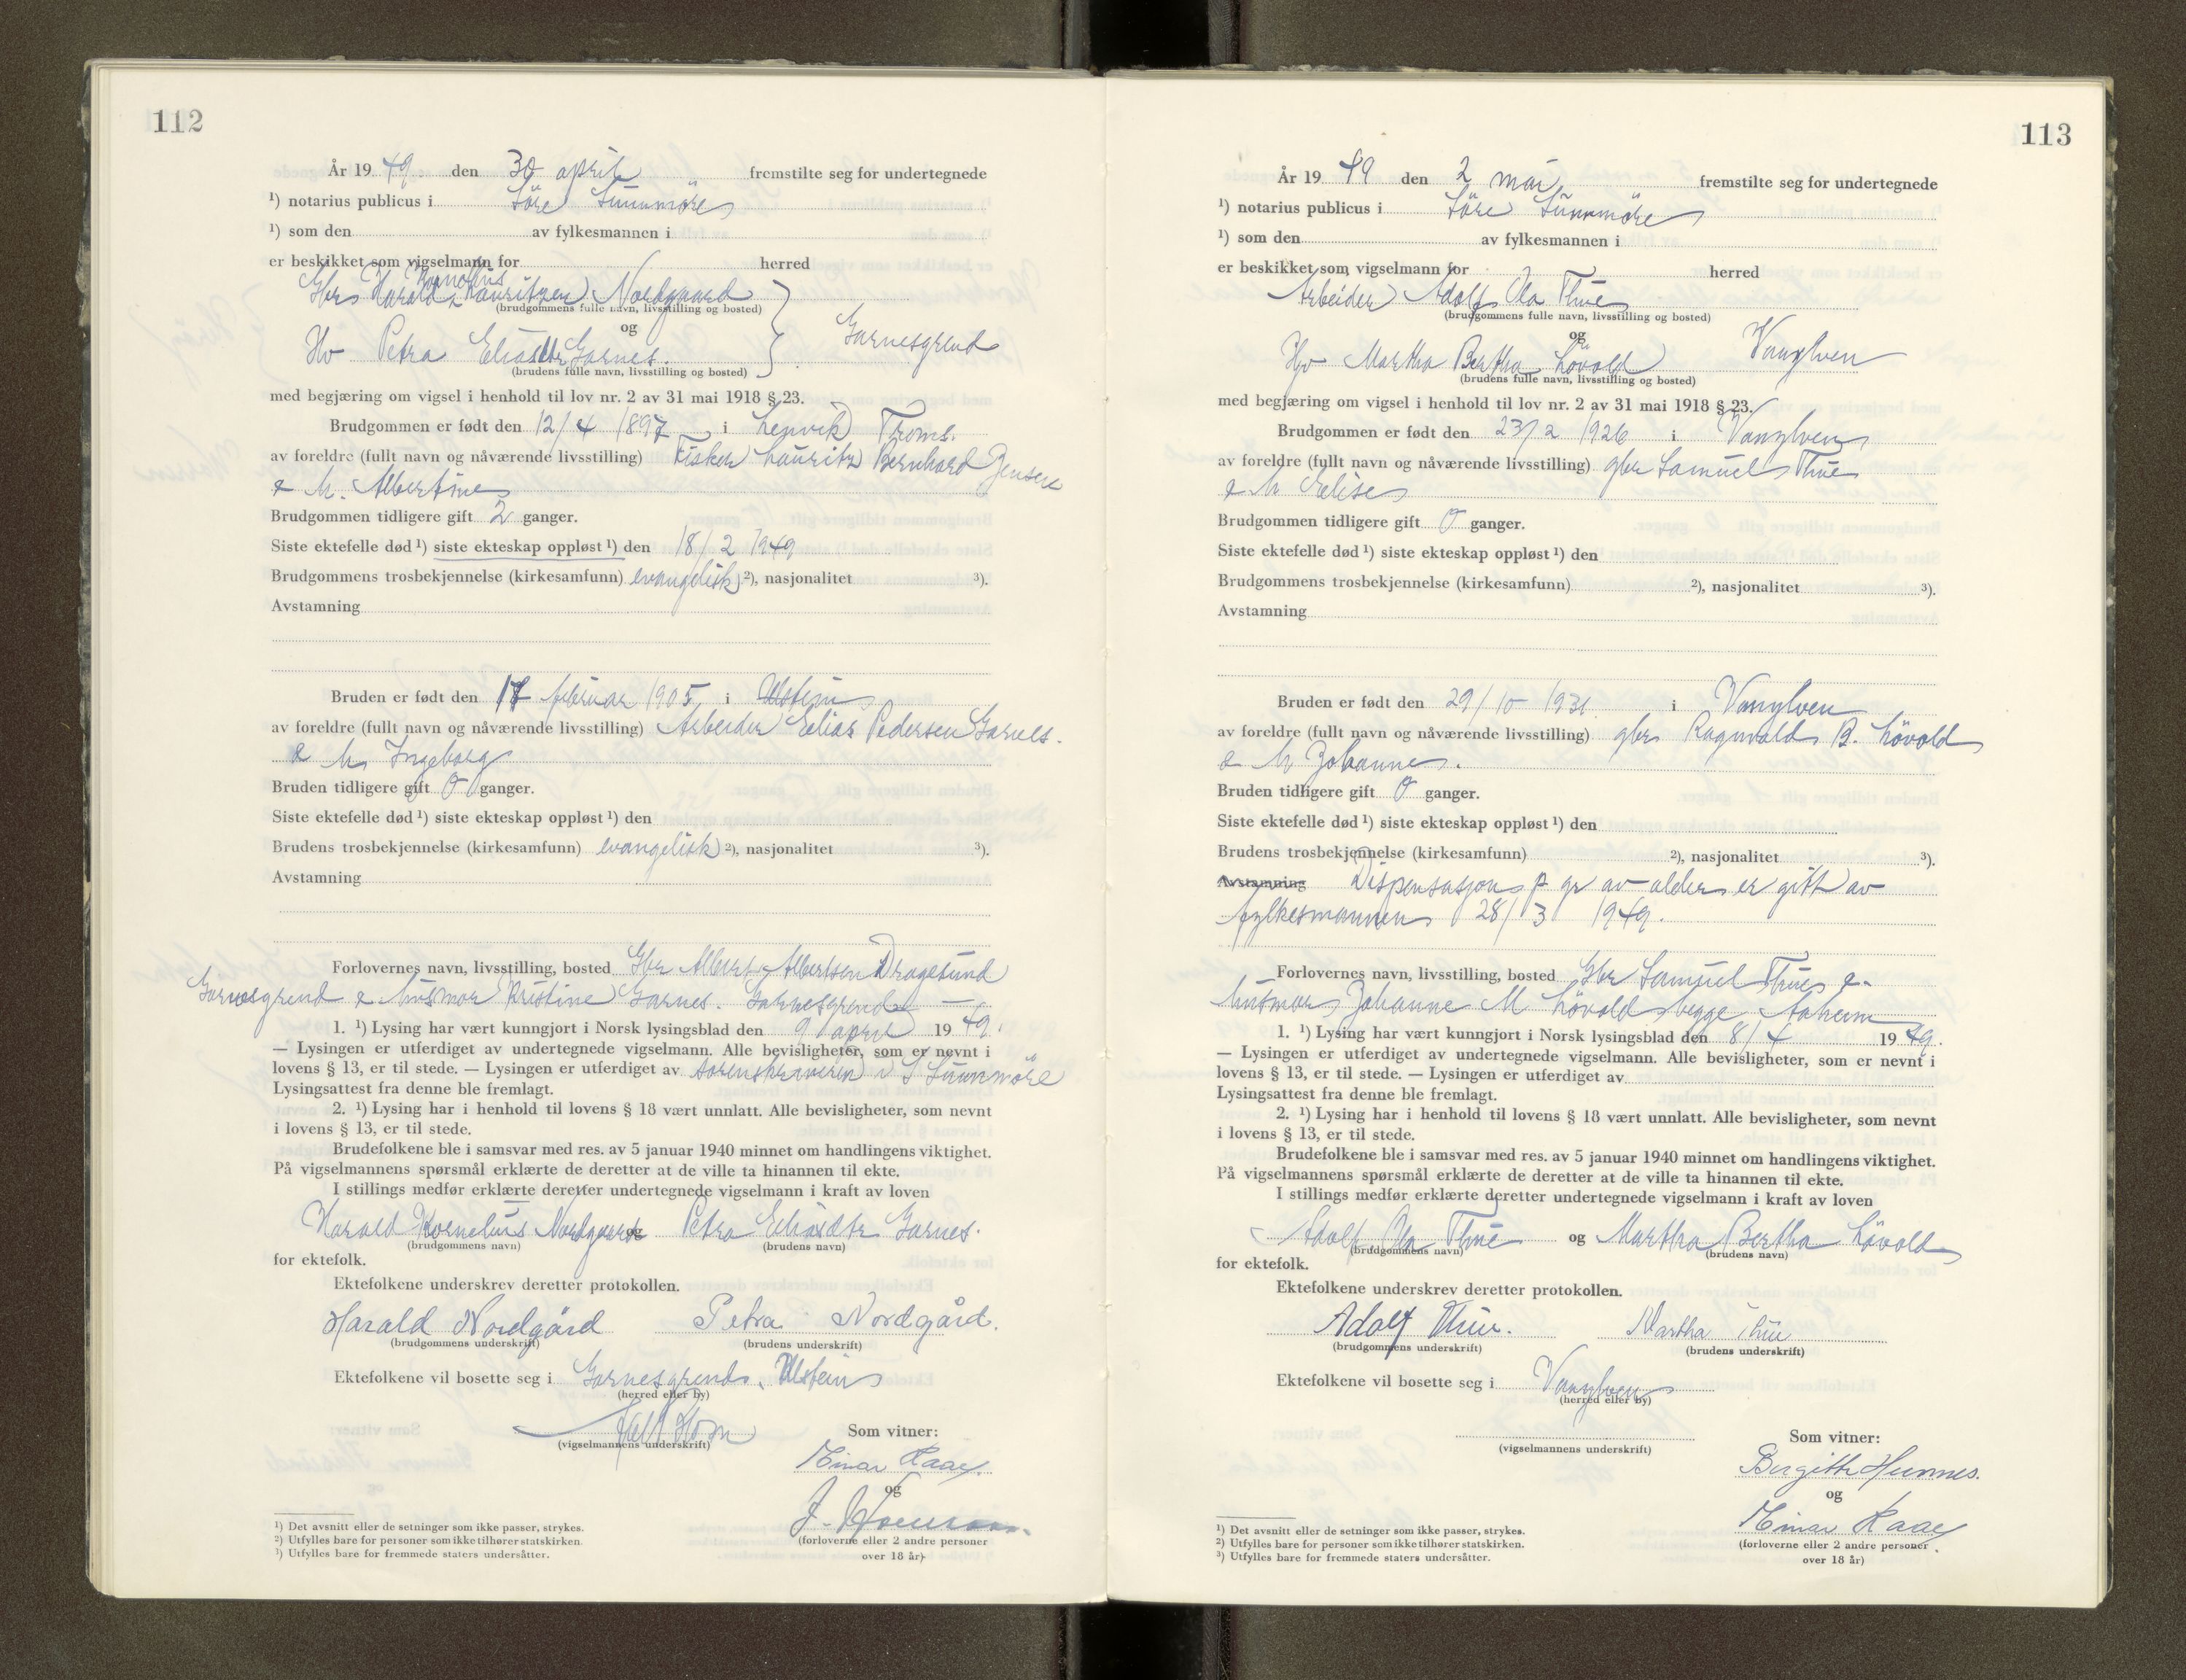 112
År 19 49 den 30 april fremstilte seg for undertegnede
¹) notarius publicus i Söre Sunnmöre
¹) som den av fylkesmannen i
er beskikket som vigselmann for herred
Kornelius
Gbr Harald Lauritzen Nordgaard
(brudgommens fulle navn, livsstilling og bosted)
og
Garnesgrend
Hv Petra Eliasdtr Garnes.
(brudens fulle navn, livsstilling og bosted)
med begjæring om vigsel i henhold til lov nr. 2 av 31 mai 1918 § 23.
Brudgommen er født den 12/4 1897 i Lenvik Troms.
av foreldre (fullt navn og nåværende livsstilling) Fisker Lauritz Bernhard Jensen
& h. Albertine
Brudgommen tidligere gift 2 ganger.
Siste ektefelle død ¹) siste ekteskap oppløst ¹) den 18/2 1949
Brudgommens trosbekjennelse (kirkesamfunn) evangelisk ²), nasjonalitet ³).
Avstamning
Bruden er født den 17 februar 1905 i Ulstein
av foreldre (fullt navn og nåværende livsstilling) Arbeider Elias Pedersen Garnes.
& h. Ingeborg
Bruden tidligere gift 0 ganger.
Siste ektefelle død ¹) siste ekteskap oppløst ¹) den
Brudens trosbekjennelse (kirkesamfunn) evangelisk ²), nasjonalitet ³).
Avstamning
Forlovernes navn, livsstilling, bosted Gbr Albert Albertsen Dragesund
Garnesgrend & husmor Kristine Garnes. Garnesgrend —
1. ¹) Lysing har vært kunngjort i Norsk lysingsblad den 9 april 19 49.
— Lysingen er utferdiget av undertegnede vigselmann. Alle bevisligheter, som er nevnt i
lovens § 13, er til stede. — Lysingen er utferdiget av sorenskriveren i S Sunnmöre
Lysingsattest fra denne ble fremlagt.
2. ¹) Lysing har i henhold til lovens § 18 vært unnlatt. Alle bevisligheter, som nevnt
i lovens § 13, er til stede.
Brudefolkene ble i samsvar med res. av 5 januar 1940 minnet om handlingens viktighet.
På vigselmannens spørsmål erklærte de deretter at de ville ta hinannen til ekte.
I stillings medfør erklærte deretter undertegnede vigselmann i kraft av loven
Harald Kornelius Nordgaard og Petra Eliasdtr Garnes.
(brudgommens navn) (brudens navn)
for ektefolk.
Ektefolkene underskrev deretter protokollen.
Harald Nordgård Petra Nordgård.
(brudgommens underskrift) (brudens underskrift)
Ektefolkene vil bosette seg i Garnesgrend, Ulstein
(herred eller by)
Som vitner:
(vigselmannens underskrift)
Einar Kaay.
og
(forloverne eller 2 andre personer
over 18 år)
¹) Det avsnitt eller de setninger som ikke passer, strykes.
²) Utfylles bare for personer som ikke tilhører statskirken.
³) Utfylles bare for fremmede staters undersåtter.
113
År 19 49 den 2 mai fremstilte seg for undertegnede
¹) notarius publicus i Söre Sunnmöre
¹) som den av fylkesmannen i
er beskikket som vigselmann for herred
Arbeider Adolf Ola Thue
(brudgommens fulle navn, livsstilling og bosted)
og
Vanylven
Hv Martha Bertha Lövold
(brudens fulle navn, livsstilling og bosted)
med begjæring om vigsel i henhold til lov nr. 2 av 31 mai 1918 § 23.
Brudgommen er født den 23/2 1926 i Vanylven
av foreldre (fullt navn og nåværende livsstilling) gbr Samuel Thue
& h Elise
Brudgommen tidligere gift 0 ganger.
Siste ektefelle død ¹) siste ekteskap oppløst ¹) den
Brudgommens trosbekjennelse (kirkesamfunn) ²), nasjonalitet ³).
Avstamning
Bruden er født den 29/10 1931 i Vanylven
av foreldre (fullt navn og nåværende livsstilling) gbr Ragnvald B. Lövold
& h Johanne.
Bruden tidligere gift 0 ganger.
Siste ektefelle død ¹) siste ekteskap oppløst ¹) den
Brudens trosbekjennelse (kirkesamfunn) ²), nasjonalitet ³).
Avstamning Dispensasjon p gr av alder er gitt av
fylkesmannen 28/3 1949.
Forlovernes navn, livsstilling, bosted Gbr Samuel Thue &
husmor Johanne M Lövold begge Aaheim
1. ¹) Lysing har vært kunngjort i Norsk lysingsblad den 8/4 19 49.
— Lysingen er utferdiget av undertegnede vigselmann. Alle bevisligheter, som er nevnt i
lovens § 13, er til stede. — Lysingen er utferdiget av
Lysingsattest fra denne ble fremlagt.
2. ¹) Lysing har i henhold til lovens § 18 vært unnlatt. Alle bevisligheter, som nevnt
i lovens § 13, er til stede.
Brudefolkene ble i samsvar med res. av 5 januar 1940 minnet om handlingens viktighet.
På vigselmannens spørsmål erklærte de deretter at de ville ta hinannen til ekte.
I stillings medfør erklærte deretter undertegnede vigselmann i kraft av loven
Adolf Ola Thue og Martha Bertha Lövold
(brudgommens navn) (brudens navn)
for ektefolk.
Ektefolkene underskrev deretter protokollen.
Adolf Thue. Martha Thue
(brudgommens underskrift) (brudens underskrift)
Ektefolkene vil bosette seg i Vanylven
(herred eller by)
Som vitner:
(vigselmannens underskrift)
Birgitte Hunnes.
og
Einar Kaay
(forloverne eller 2 andre personer
over 18 år)
¹) Det avsnitt eller de setninger som ikke passer, strykes.
²) Utfylles bare for personer som ikke tilhører statskirken.
³) Utfylles bare for fremmede staters undersåtter.